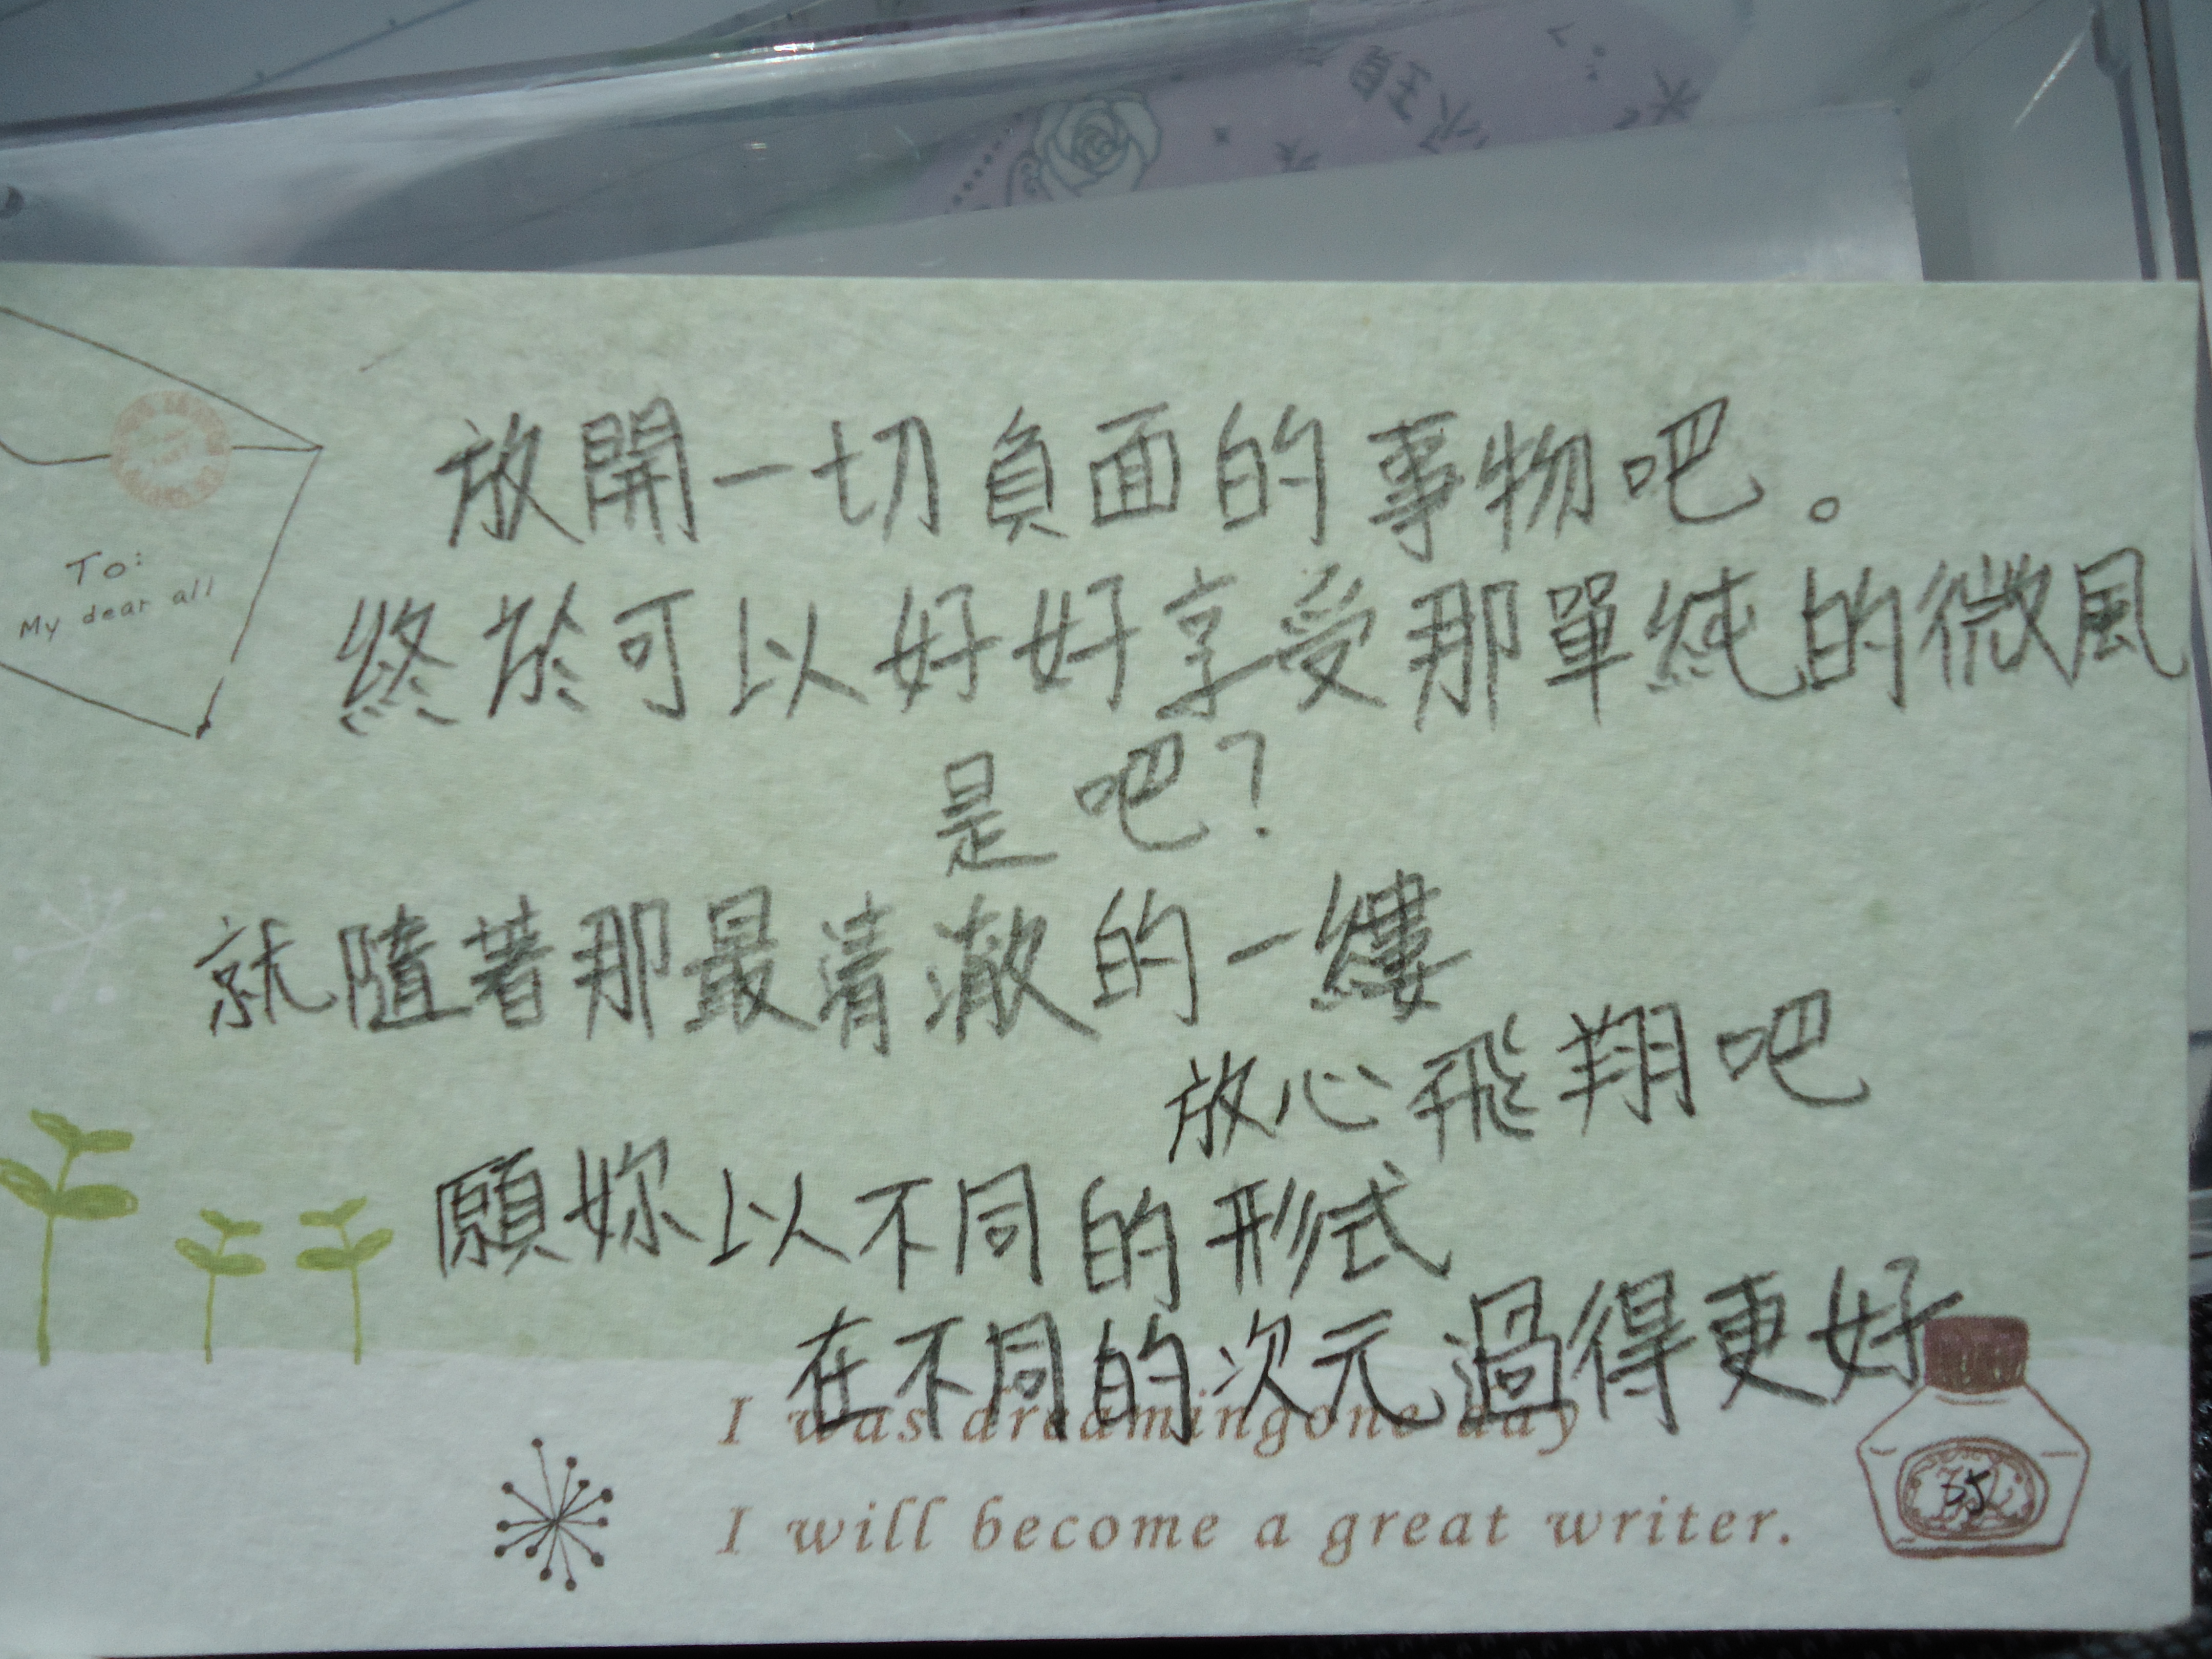 To:
My dear all
放開一切負面的事物吧。
終於可以好好享受那單純的微風
是吧？
就隨著那最清澈的一縷
放心飛翔吧
願妳以不同的形式
在不同的次元過得更好
I was dreamingone day
I will become a great writer.